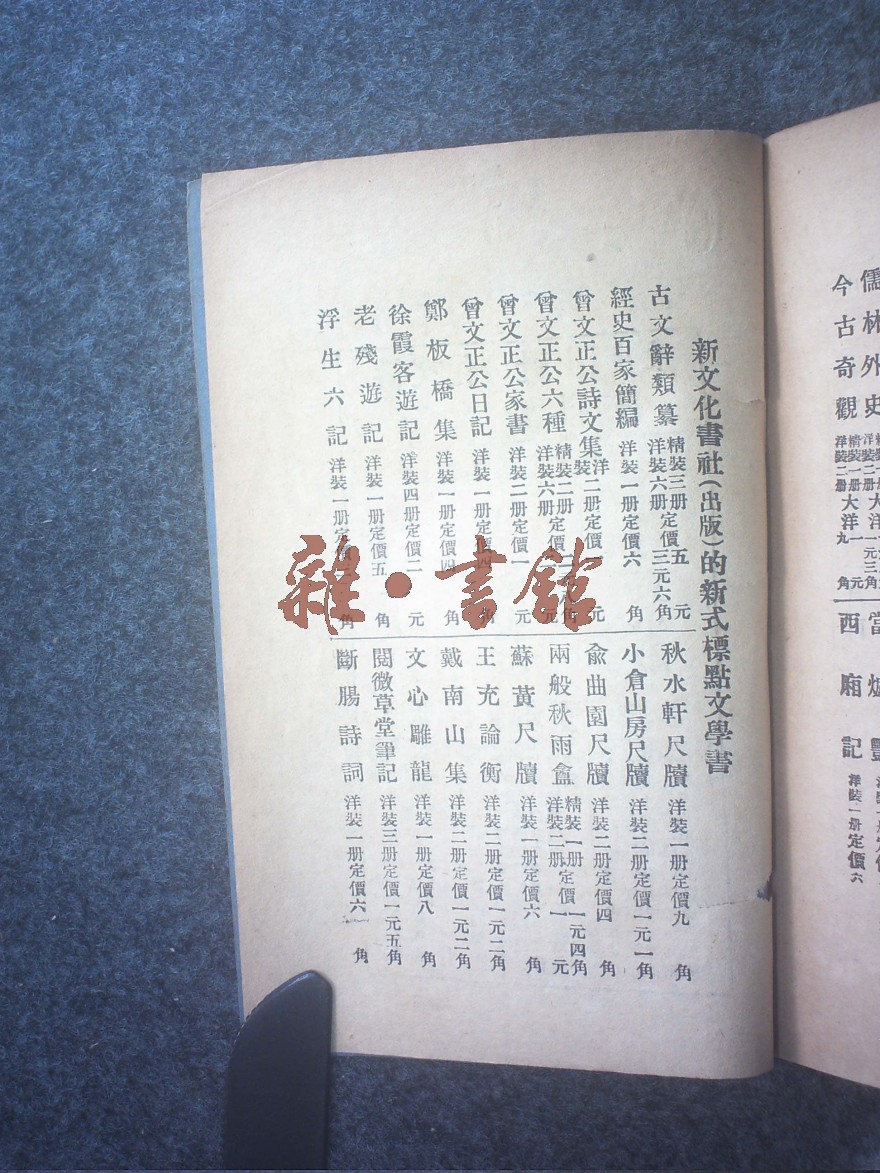 新文化書社(出版)的新式標點文學書
古文辭類纂 精裝三册定價五元 洋裝六册定價三元六角
經史百家簡編 洋裝一册定價六角
曾文正公詩文集 洋裝二册定價一元
曾文正公六種 精裝二册定價 洋裝六册定價
曾文正公家書 洋裝二册定價一元
曾文正公日記 洋裝一册定價四角
鄭板橋集 洋裝一册定價四角
徐霞客遊記 洋裝四册定價二元
老殘遊記 洋裝一册定價五角
浮生六記 洋裝一册定價 角
秋水軒尺牘 洋裝一册定價九角
小倉山房尺牘 洋裝二册定價一元一角
兪曲園尺牘 洋裝二册定價四角
兩般秋雨盦 精裝一册 一元四角 洋裝二册定價一元
蘇黃尺牘 洋裝一册定價六角
王充論衡 洋裝二册定價一元二角
戴南山集 洋裝二册定價一元二角
文心雕龍 洋裝一册定價八角
閱微草堂筆記 洋裝三册定價一元五角
斷腸詩詞 洋裝一册定價六角
儒林外史
今古奇觀 精裝一册 洋裝二册大洋九角
西廂記 洋裝一册定價六
雜·書館